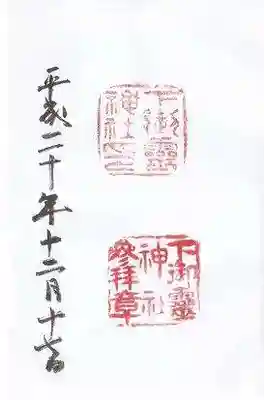 下御靈
神社印
下御靈
神社
参拝章
平成二十年十二月十七日